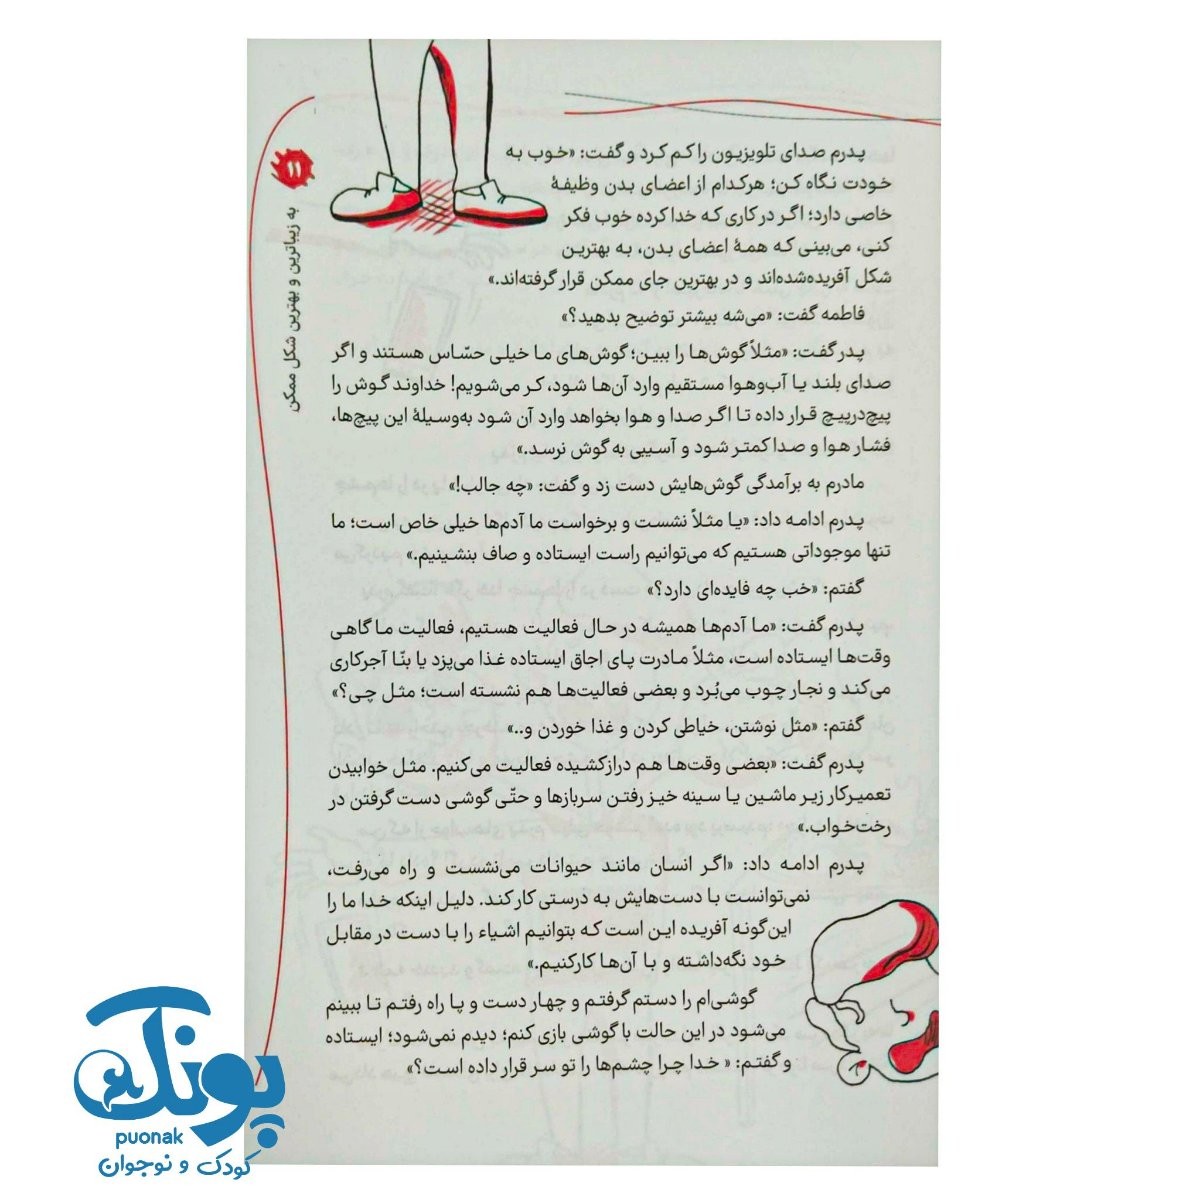 پدرم صدای تلویزیون را کم کرد و گفت: «خوب به
خودت نگاه کن؛ هرکدام از اعضای بدن وظیفهٔ
خاصی دارد؛ اگر در کاری که خدا کرده خوب فکر
کنی، می‌بینی که همهٔ اعضای بدن، به بهترین
شکل آفریده‌شده‌اند و در بهترین جای ممکن قرار گرفته‌اند.»
فاطمه گفت: «می‌شه بیشتر توضیح بدهید؟»
پدر گفت: «مثلاً گوش‌ها را ببین؛ گوش‌های ما خیلی حسّاس هستند و اگر
صدای بلند یا آب‌وهوا مستقیم وارد آن‌ها شود، کر می‌شویم! خداوند گوش را
پیچ‌درپیچ قرار داده تا اگر صدا و هوا بخواهد وارد آن شود به‌وسیلهٔ این پیچ‌ها،
فشار هوا و صدا کمتر شود و آسیبی به گوش نرسد.»
مادرم به برآمدگی گوش‌هایش دست زد و گفت: «چه جالب!»
پدرم ادامه داد: «یا مثلاً نشست و برخواست ما آدم‌ها خیلی خاص است؛ ما
تنها موجوداتی هستیم که می‌توانیم راست ایستاده و صاف بنشینیم.»
گفتم: «خب چه فایده‌ای دارد؟»
پدرم گفت: «ما آدم‌ها همیشه در حال فعالیت هستیم، فعالیت ما گاهی
وقت‌ها ایستاده است، مثلاً مادرت پای اجاق ایستاده غذا می‌پزد یا بنّا آجرکاری
می‌کند و نجار چوب می‌بُرد و بعضی فعالیت‌ها هم نشسته است؛ مثل چی؟»
گفتم: «مثل نوشتن، خیاطی کردن و غذا خوردن و..»
پدرم گفت: «بعضی وقت‌ها هم درازکشیده فعالیت می‌کنیم. مثل خوابیدن
تعمیرکار زیر ماشین یا سینه خیز رفتن سربازها و حتّی گوشی دست گرفتن در
رخت‌خواب.»
پدرم ادامه داد: «اگر انسان مانند حیوانات می‌نشست و راه می‌رفت،
نمی‌توانست با دست‌هایش به درستی کار کند. دلیل اینکه خدا ما را
این‌گونه آفریده این است که بتوانیم اشیاء را با دست در مقابل
خود نگه‌داشته و با آن‌ها کارکنیم.»
گوشی‌ام را دستم گرفتم و چهار دست و پا راه رفتم تا ببینم
می‌شود در این حالت با گوشی بازی کنم؛ دیدم نمی‌شود؛ ایستاده
و گفتم: « خدا چرا چشم‌ها را تو سر قرار داده است؟»
۱۱
به زیباترین و بهترین شکل ممکن
پونک
puonak
کودک و نوجوان